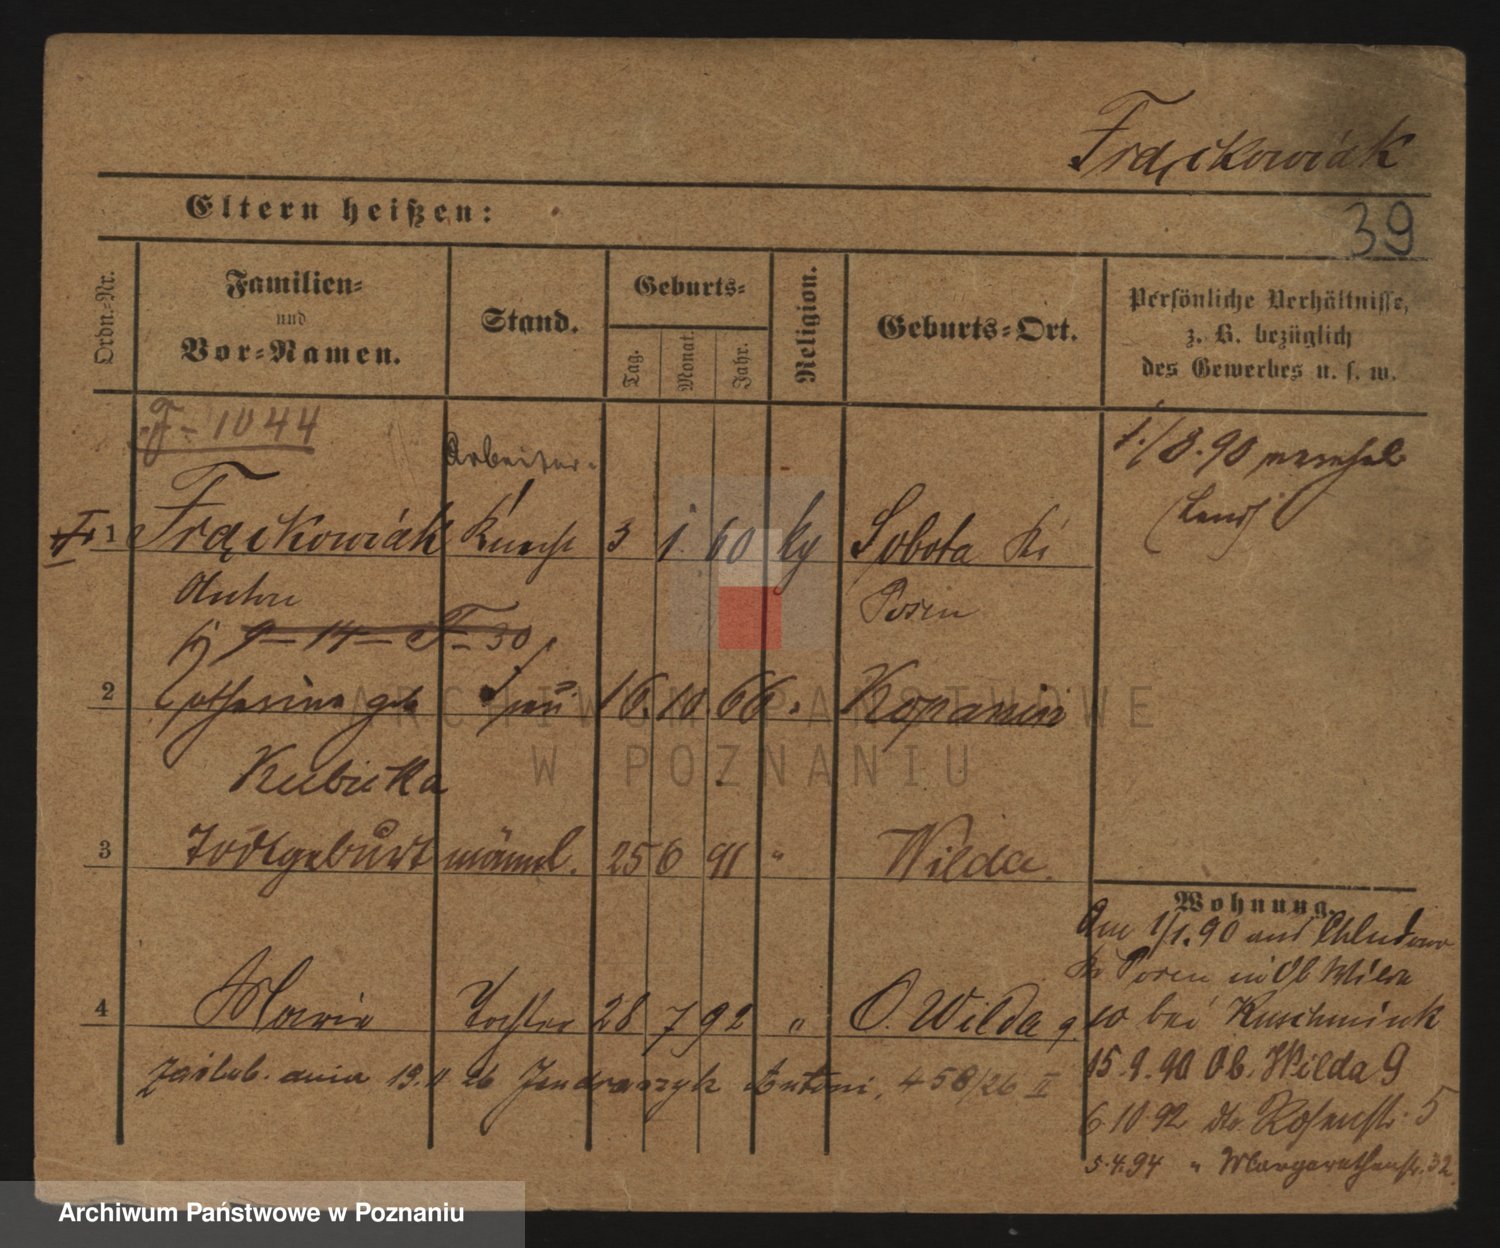 Frąckowiak
Eltern heißen:
39
Ordn.-Nr.
Familien-
und
Vor-Namen.
Stand.
Geburts-
Tag.
Monat.
Jahr.
Religion.
Geburts-Ort.
Persönliche Verhältnisse,
z. B. bezüglich
des Gewerbes u. s. w.
F - 1044
Arbeiter
1 Frąckowiak Knecht 3 1. 60 kg Sobota Kr
Posen
Anton
9 - 14 - F - 30
2 Catharina geb Frau 16. 10. 66 " Kopanin
Kubicka
3 Todtgeburt männl. 25 6 91 " Wilda.
4 Marie Tochter 28 7 92 " O. Wilda 9.
zaślub. dnia 19.11 26 Jendraszyk Antoni, 458/26 II
1./8.90
Wohnung.
Am 1/1.90 aus Chludowo
Kr Posen in Ob Wilda
10 bei Kuschmink
15.9.90 Ob. Wilda 9
6.10.92 do. Rosenstr. 5
5.4.94 " Margarethenstr. 32.
ARCHIWUM PAŃSTWOWE
W POZNANIU
Archiwum Państwowe w Poznaniu